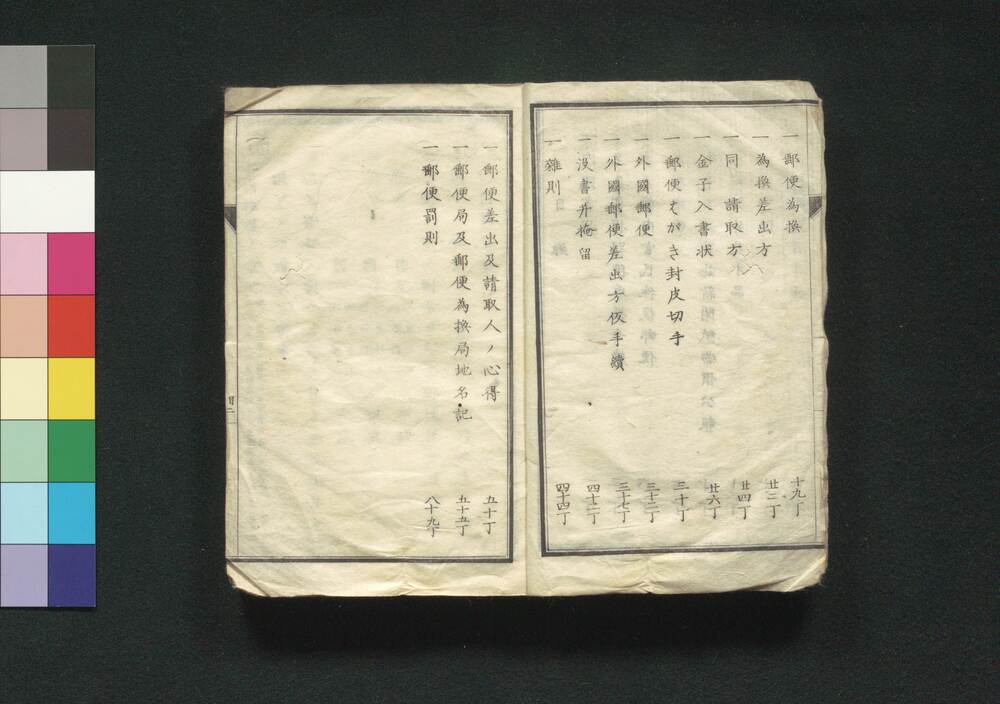 一 郵便為換 十九丁
一 為換差出方 廿二丁
一 同 請取方 廿四丁
一 金子入書状 廿六丁
一 郵便はがき封皮切手 三十丁
一 外國郵便 三十二丁
一 外國郵便差出方仮手續 三十七丁
一 没書并掩留 四十二丁
一 雜則 四十四丁
一 郵便差出及請取人ノ心得 五十丁
一 郵便局及郵便為換局地名記 五十五丁
一 郵便罰則 八十九丁
目二